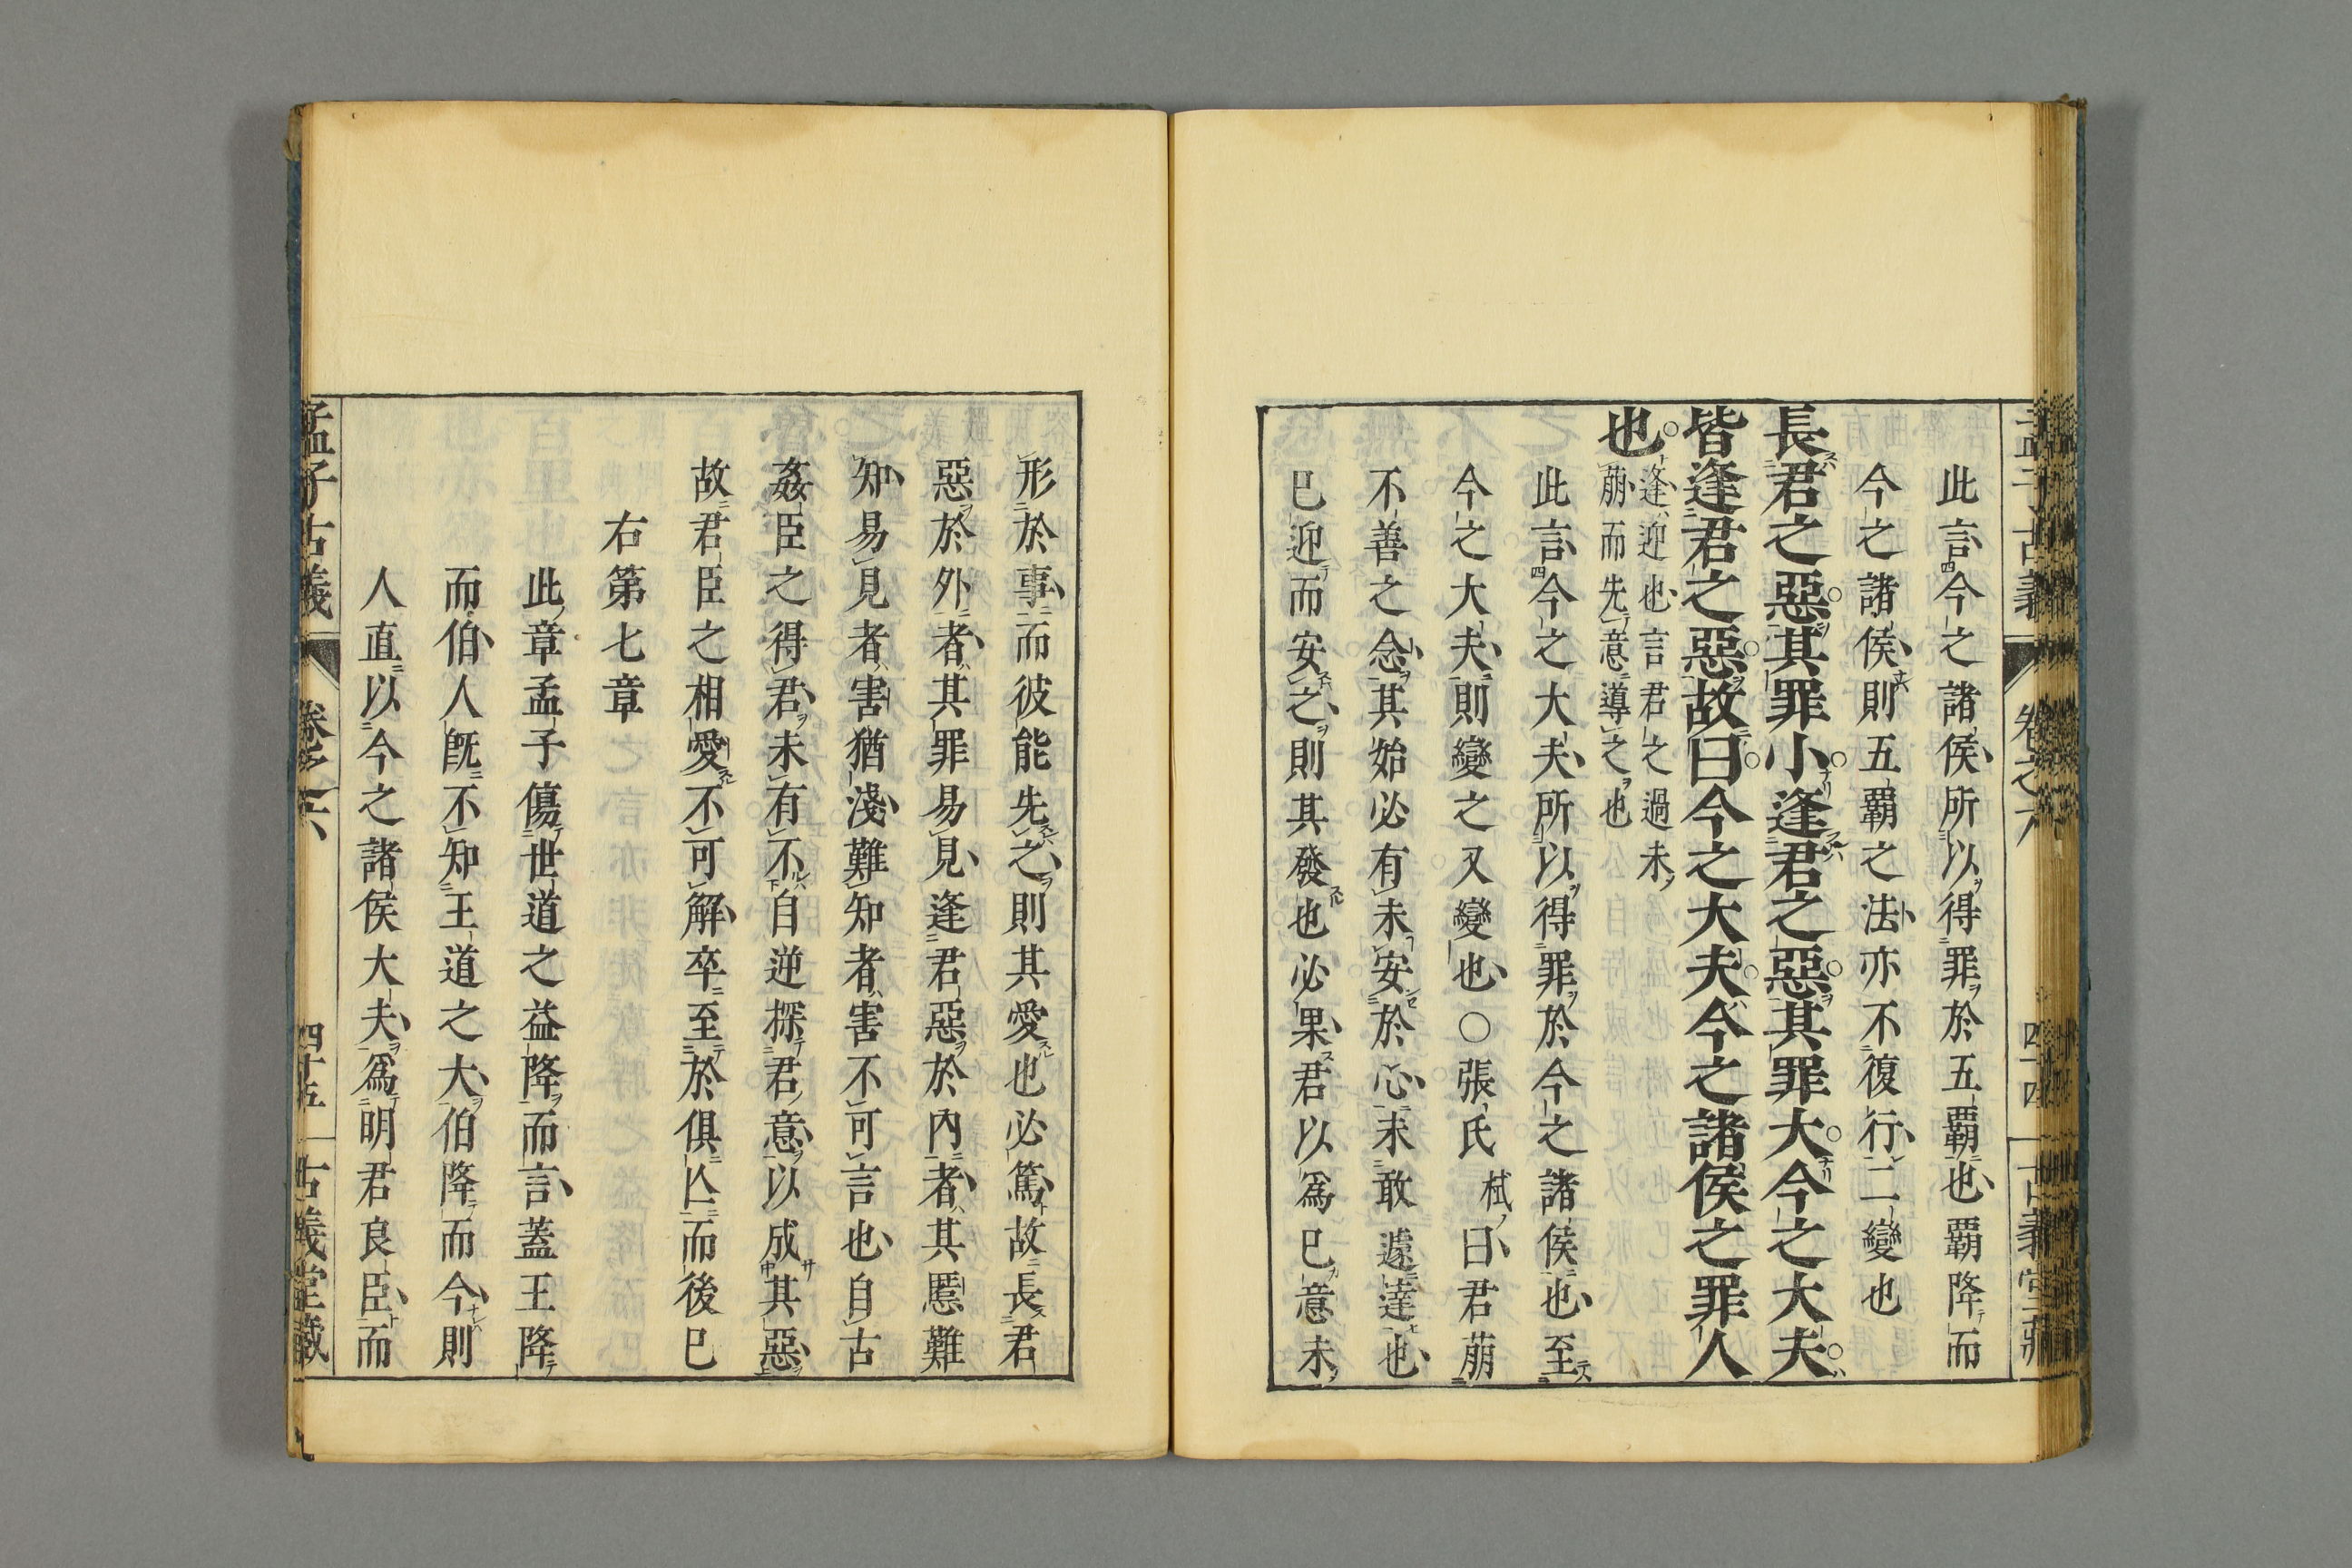 此言今之諸侯所以得罪於五霸也霸降而
今之諸侯則五霸之法亦不復行二變也
長君之惡其罪小逢君之惡其罪大今之大夫
皆逢君之惡故曰今之大夫今之諸侯之罪人
也
逢迎也言君之過未
萠而先意導之也
此言今之大夫所以得罪於今之諸侯也至
今之大夫則變之又變也○張氏栻曰君萠
不善之念其始必有未安於心未敢遽達也
已迎而安之則其發也必果君以爲已意未
形於事而彼能先之則其愛也必篤故長君
惡於外者其罪易見逢君惡於內者其慝難
知易見者害猶淺難知者害不可言也自古
姦臣之得君未有不自逆探君意以成其惡
故君臣之相愛不可解卒至於俱亾而後已
右第七章
此章孟子傷世道之益降而言蓋王降
而伯人旣不知王道之大伯降而今則
人直以今之諸侯大夫爲明君良臣而
孟子古義 卷之六 四十五 古義堂藏